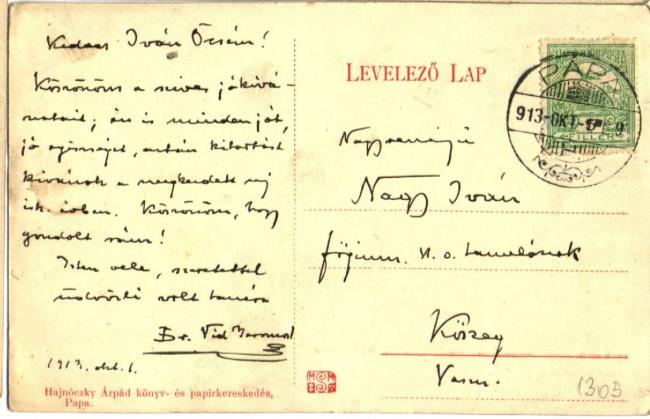 Kedves Iván Öcsém!
Köszönöm a szives jókivá-
natait; én is minden jót,
jó egészséget, aztán kitartást
kivánok a megkezdett új
isk. évben. Köszönöm, hogy
gondolt rám!
Isten vele, szeretettel
üdvözli volt tanára
Dr. Vid
1913. okt. 1.
Hajnóczky Árpád könyv- és papirkereskedés,
Papa.
LEVELEZŐ LAP
PAPA
913-OKT
FILLÉR
Nagyreményű
Nagy Iván
főgimn. VI. o. tanulónak
Kőszeg
Vasm.
1303